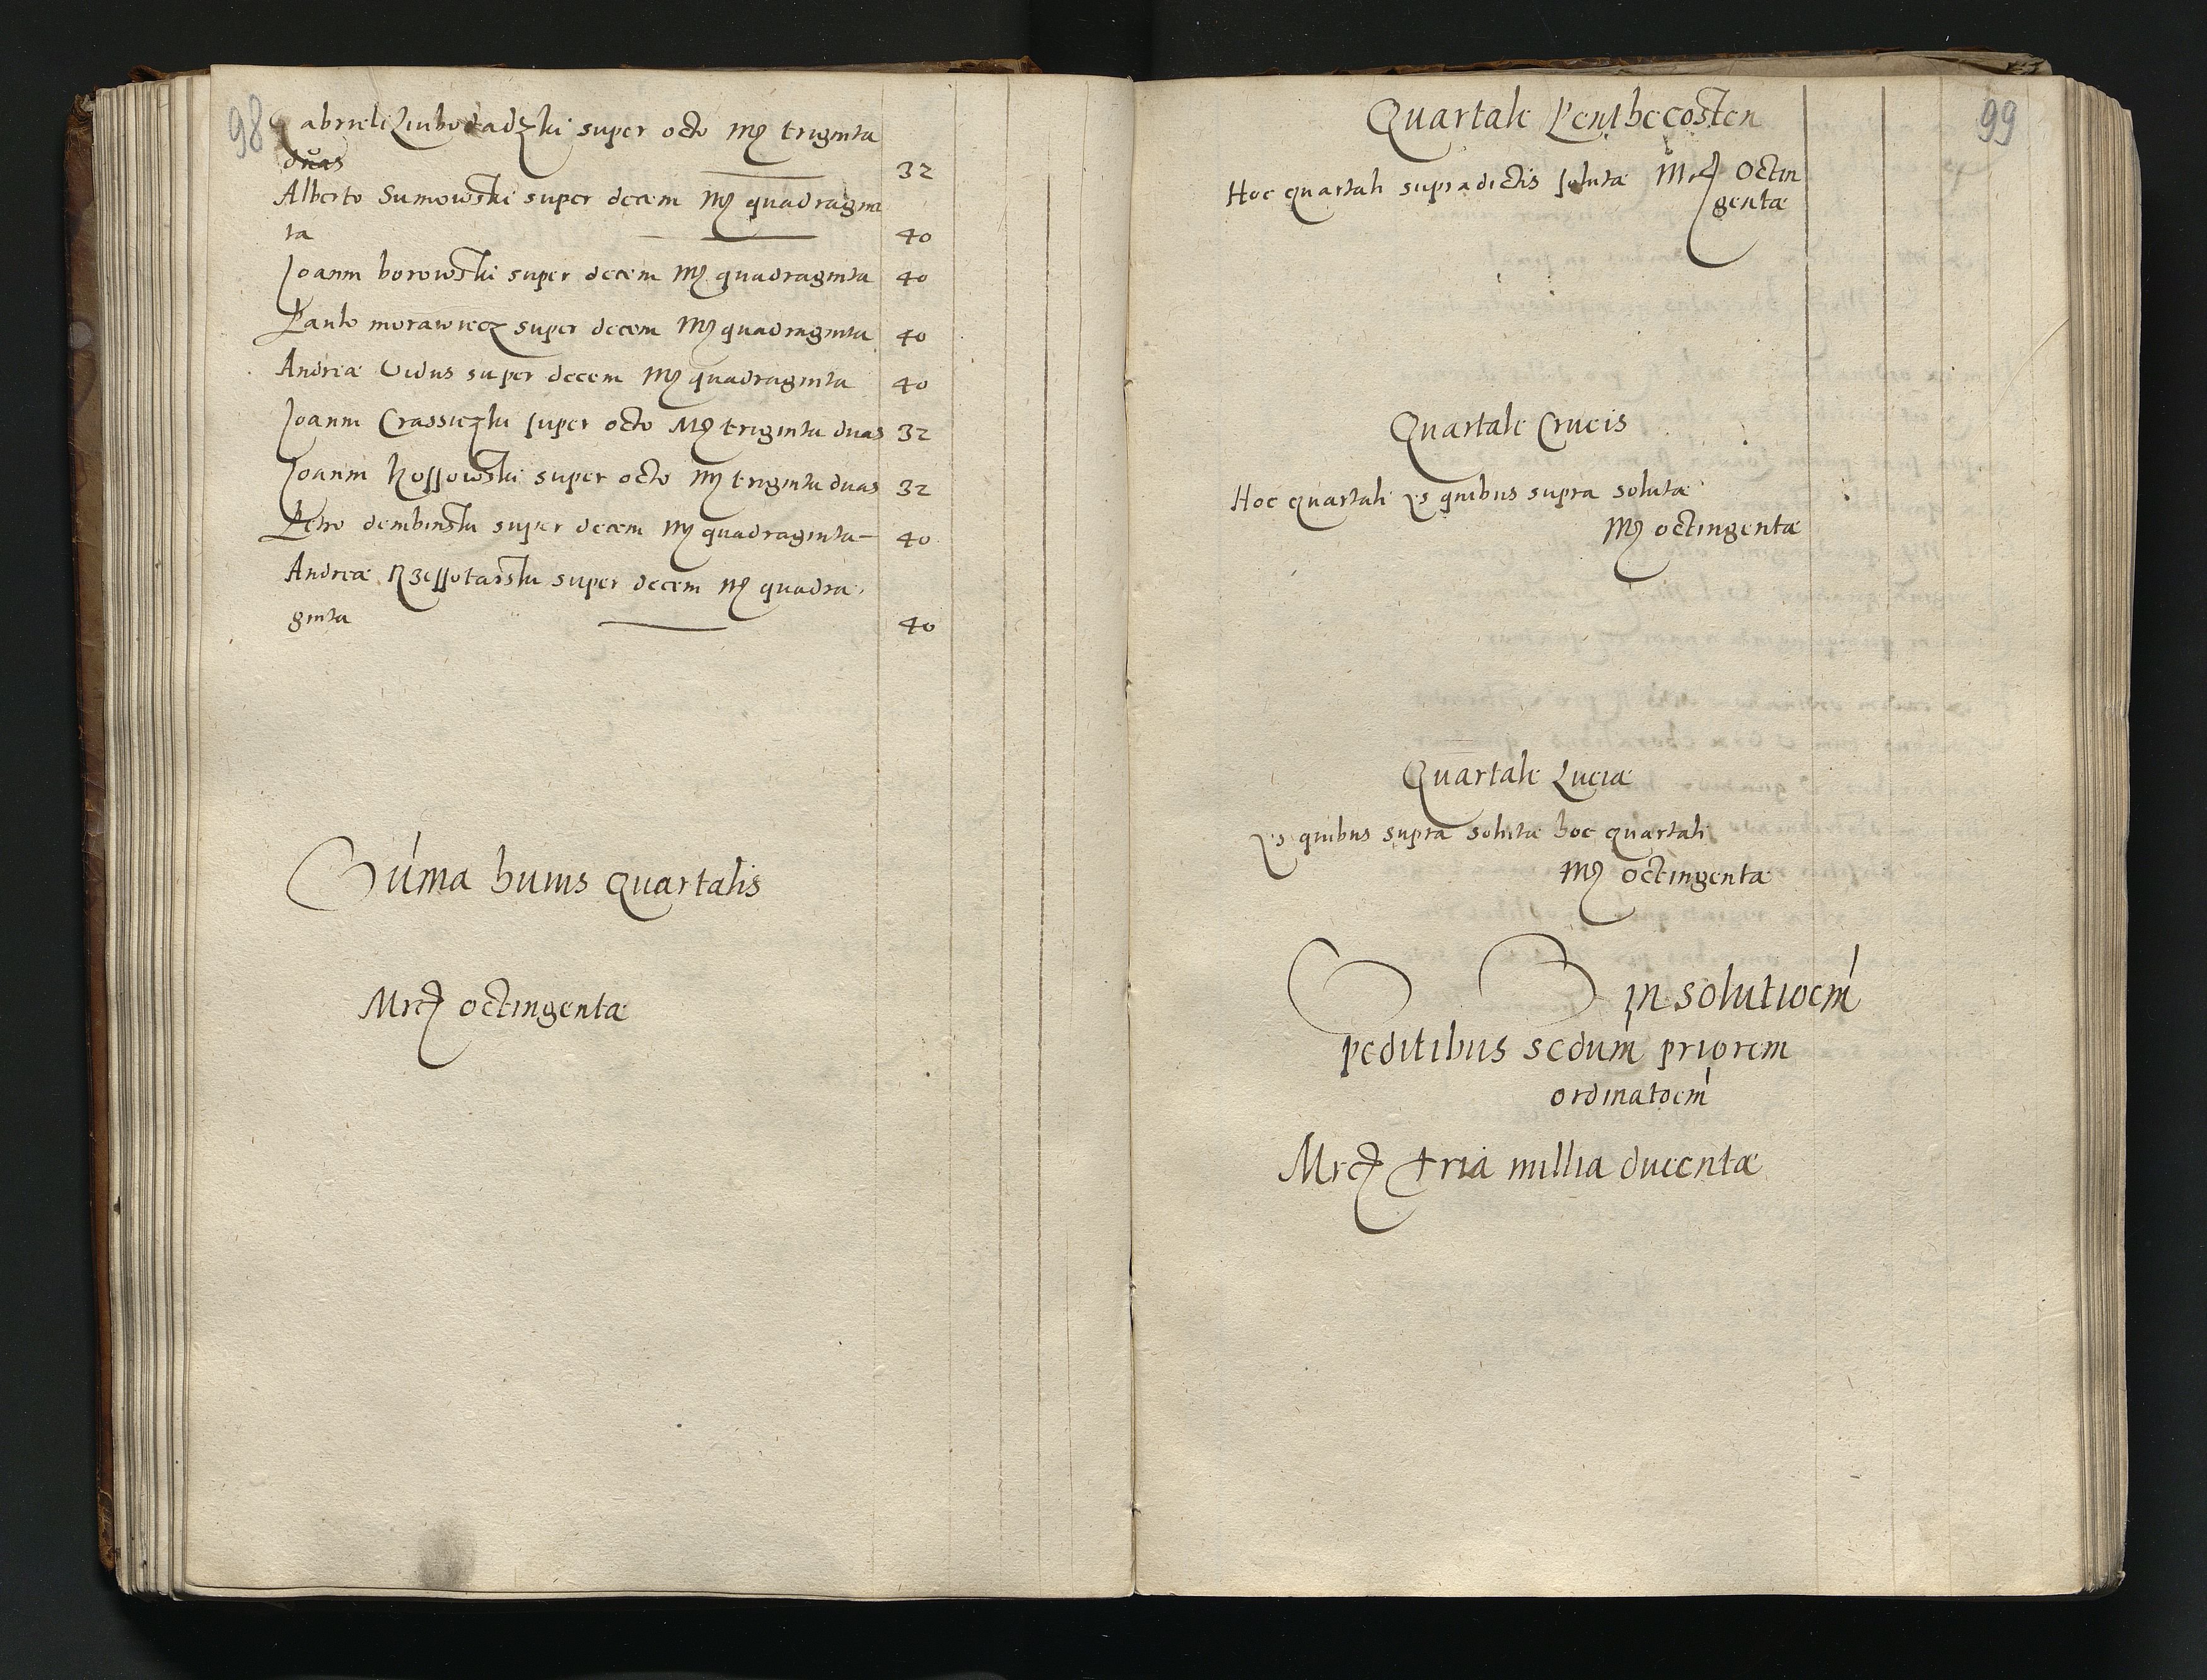 98
Gabrieli Liuboradzki super octo Mc triginta
duas 32
Alberto Sumowski super decem Mc quadragin
ta 40
Joanni borowski super decem Mc quadraginta 40
Paulo morawiecz super decem Mc quadraginta 40
Andreæ Vidus super decem Mc quadraginta 40
Joanni Crassiczki super octo Mc triginta duas 32
Joanni Kossowski super octo Mc triginta duas 32
Petro dembinski super decem Mc quadraginta 40
Andreæ Rzessotarski super decem Mc quadra
ginta 40
Suma huius quartalis
Mrc octingentæ
99
Quartale Penthecosten
Hoc quartali supradictis solutæ Mrc Octin
gentæ
Quartale Crucis
Hoc quartali ys quibus supra solutæ
Mc octingentæ
Quartale Luciæ
ys quibus supra solutæ hoc quartali
Mc octingentæ
SS in solutioem
peditibus scdum priorem
ordinatoem
Mrc tria millia ducentæ